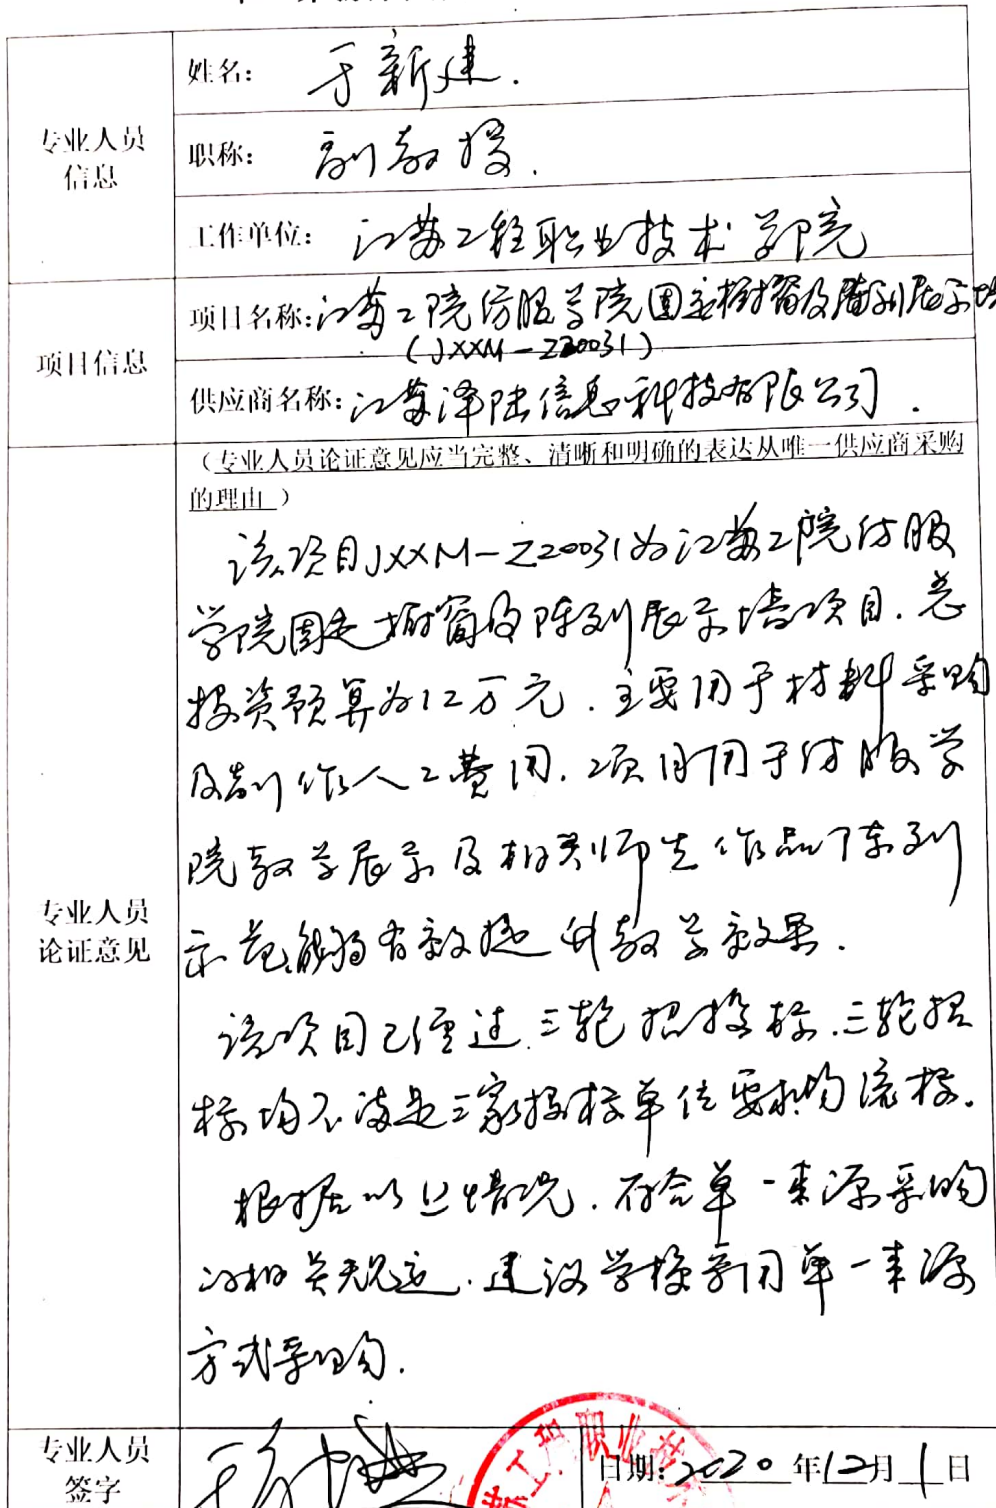 专业人员
信息
姓名：于新建.
职称：副教授.
工作单位：江苏工程职业技术学院
项目信息
项目名称：江苏工院纺服学院固定橱窗及陈列展示墙
(JXXM-Z20031)
供应商名称：江苏泽陆信息科技有限公司.
专业人员
论证意见
（专业人员论证意见应当完整、清晰和明确的表达从唯一供应商采购
的理由 ）
该项目JXXM-Z20031为江苏工院纺服
学院固定橱窗及陈列展示墙项目.总
投资预算为12万元.主要用于材料采购
及制作人工费用.项目用于纺服学
院教学展示及相关师生作品陈列
示范,能够有效提升教学效果.
该项目已经过三轮招投标.三轮招
标均不满足三家投标单位要求均流标.
根据以上情况.符合单一来源采购
的相关规定.建议学校采用单一来源
方式采购.
专业人员
签字
于新建
工程职业技
日期：2020年12月1日